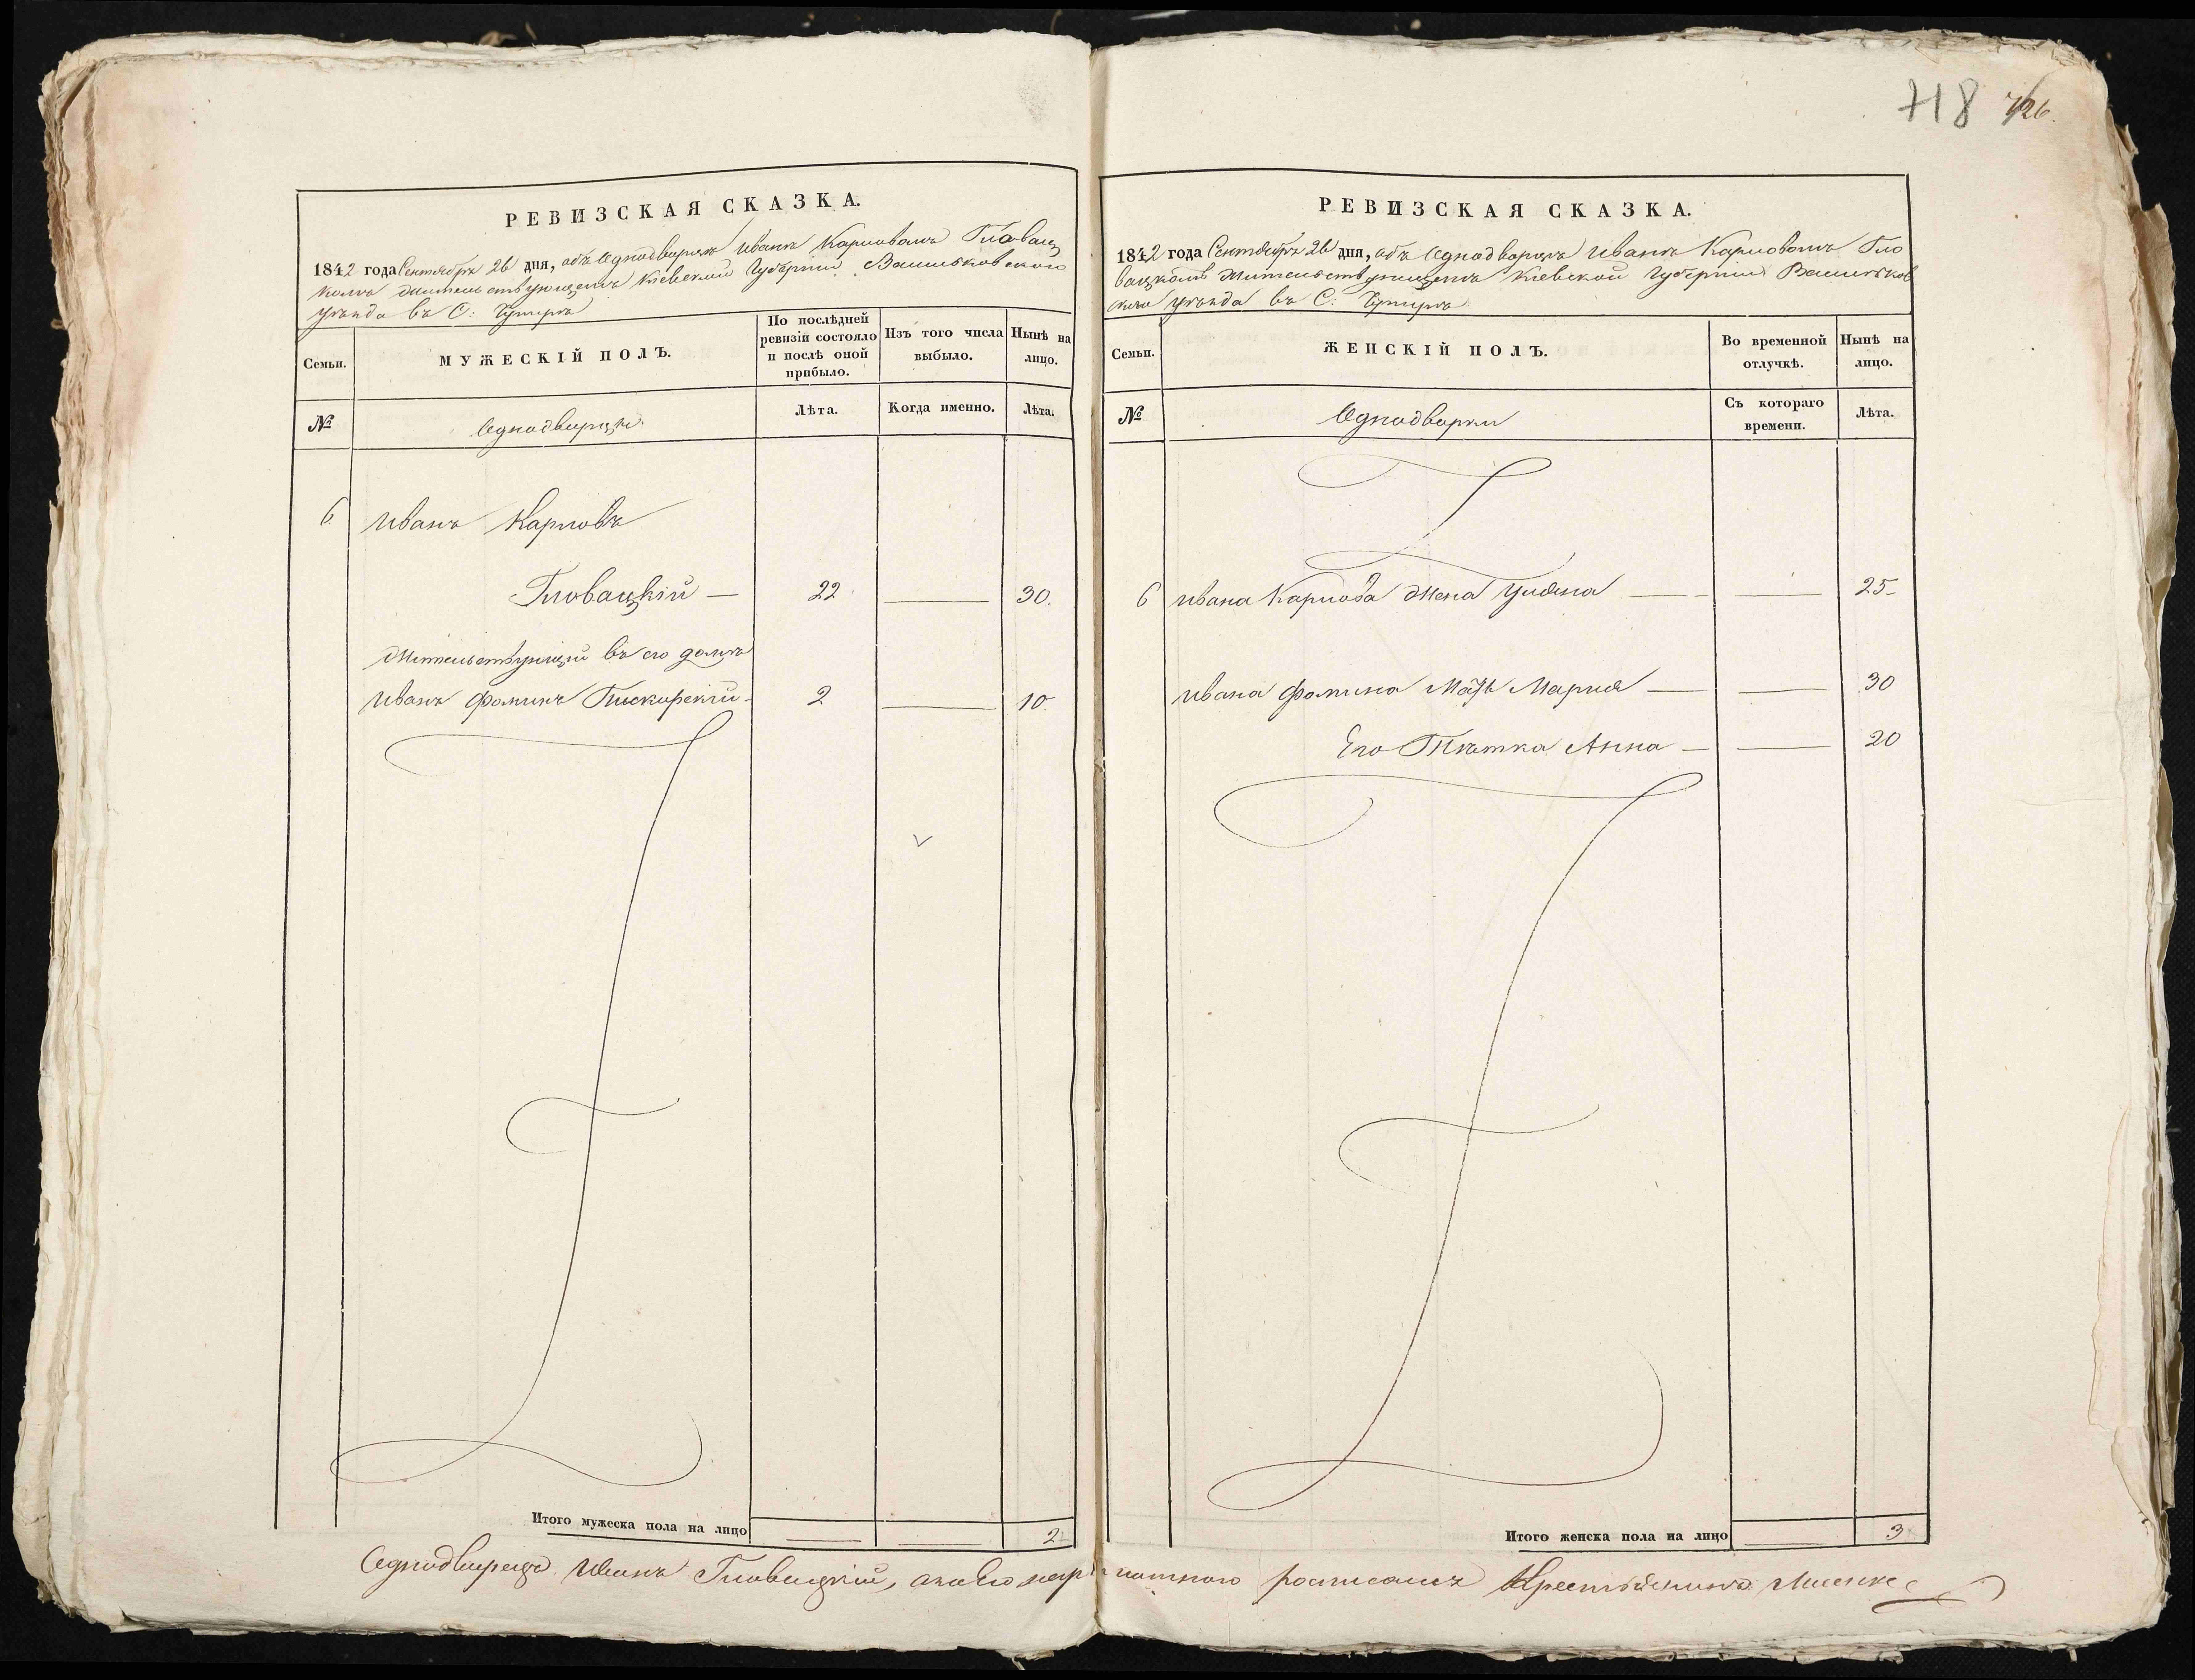 718 726.
РЕВИЗСКАЯ СКАЗКА.
1842 года Сентября 26 дня, объ Однодворцѣ Иванѣ Карповомъ Гловац
комъ жительствующемъ Кіевской Губерніи Васильковского
уѣзда въ С:
Семьи.
МУЖЕСКІЙ ПОЛЪ.
По послѣдней ревизіи состояло и послѣ оной прибыло.
Изъ того числа выбыло.
Нынѣ на лицо.
№
Однодворцы
Лѣта.
Когда именно.
Лѣта.
6 Иванъ Карповъ
Гловацкій — 22 — 30.
Жительствующій въ его домѣ
Иванъ Фоминъ — 2 — 10
Итого мужеска пола на лицо — — 2
РЕВИЗСКАЯ СКАЗКА.
1842 года Сентября 26 дня, объ Однодворцѣ Иванѣ Карповомъ Гло
вацкомъ жительствующемъ Кіевской Губерніи Васильков
ского уѣзда въ С:
Семьи.
ЖЕНСКІЙ ПОЛЪ.
Во временной отлучкѣ.
Нынѣ на лицо.
№
Однодворки
Съ котораго времени.
Лѣта.
6 Ивана Карпова жена Уляна — — 25
Ивана Фомина Мать Марія — — 30
Его Тѣтка Анна — — 20
Итого женска пола на лицо — 3
Однодворецъ Иванъ Гловацкій, а за его неграмотного росписалъ Крестьянинъ